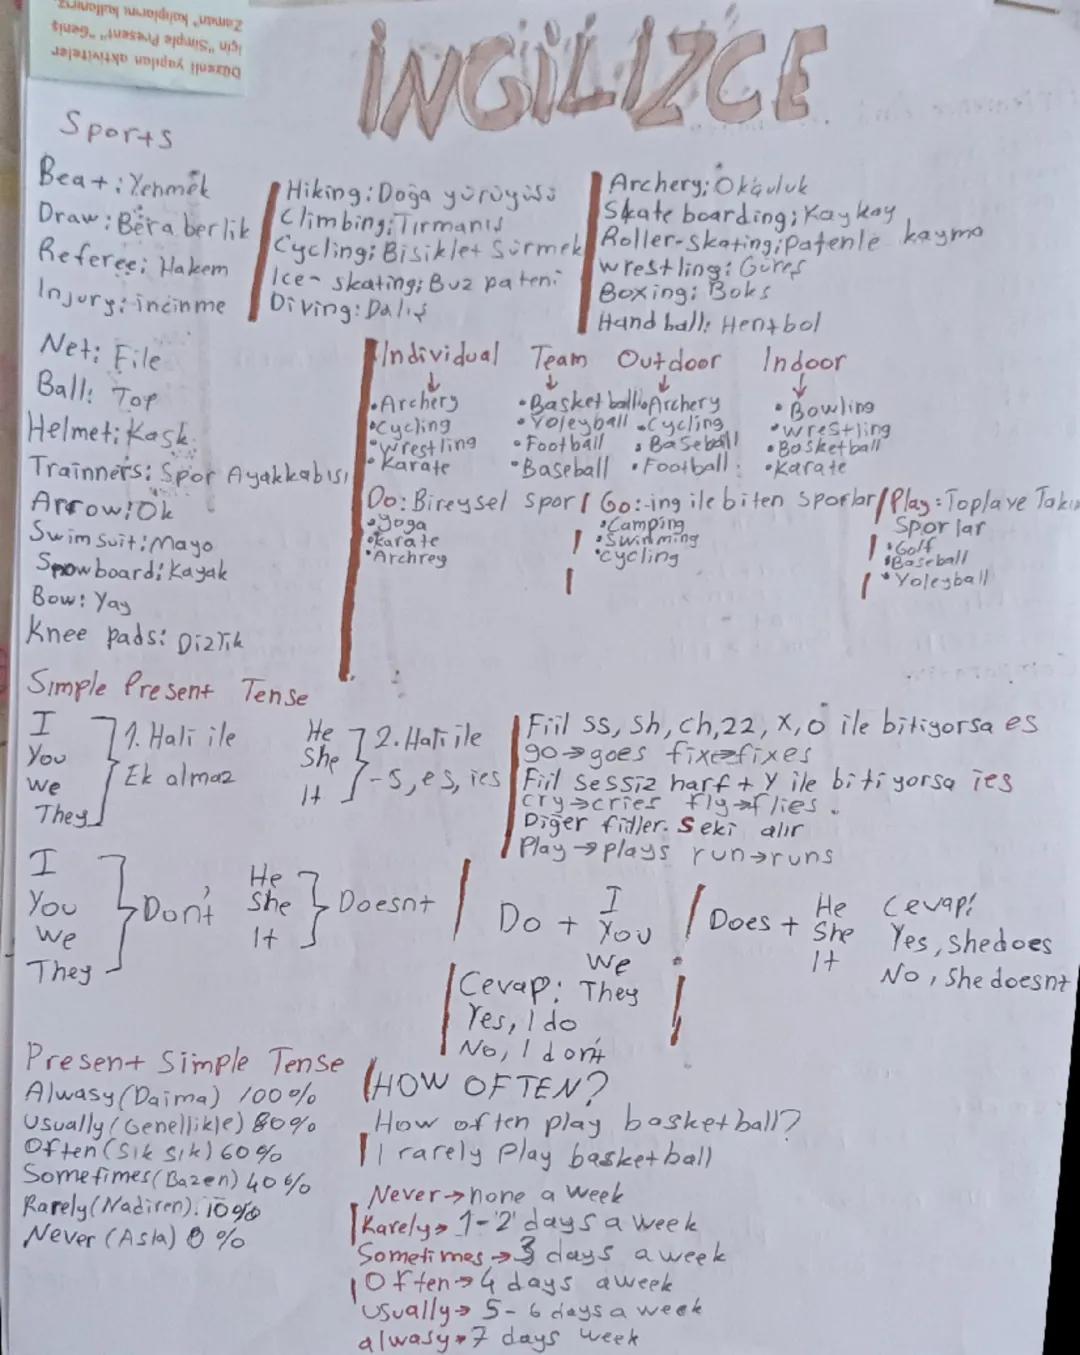 Düzenli yapılan aktiviteler
için "Simple Present" "Geniş
Zaman" kalıplarını kullanırız.
İNGİLİZCE
Sports
Beat: Yenmek
Draw: Beraberlik
Referee: Hakem
Injury: incinme
Net: File
Ball: Top
Helmet: Kask
Trainners: Spor Ayakkabısı
Arrow: Ok
Swim suit: Mayo
Snowboard: Kayak
Bow: Yay
Knee pads: Dizlik
Hiking: Doğa yürüyüşü
Climbing: Tırmanış
Cycling: Bisiklet Sürmek
Ice-skating: Buz pateni
Diving: Dalış
Archery: Okçuluk
Skate boarding: Kaykay
Roller-skating: Patenle kayma
wrestling: Güreş
Boxing: Boks
Hand ball: Hentbol
Individual Team Outdoor Indoor
↓ ↓ ↓ ↓
•Archery •Basketball •Archery •Bowling
•Cycling •Voleyball •Cycling •wrestling
•wrestling •Football •Baseball •Basketball
•Karate •Baseball •Football •Karate
Do: Bireysel spor / Go: -ing ile biten Sporlar / Play: Topla ve Takım
Sporlar
•yoga •Camping •Golf
•Karate •Swimming •Baseball
•Archrey •cycling •Voleyball
Simple Present Tense
I
You
we
They
1. Hali ile
Ek almaz
He
She
It
2. Hali ile
-s, es, ies
Fiil ss, sh, ch, zz, x, o ile bitiyorsa es
go→goes fix→fixes
Fiil Sessiz harf + y ile bitiyorsa ies
cry→cries fly→flies.
Diğer fiiller. S eki alır
Play→plays run→runs
I
You
we
They
Don't
He
She
It
Doesnt
Do + I
You
we
They
Cevap:
Yes, I do
No, I don't
Does + He
She
It
Cevap:
Yes, she does
No, She doesnt
Present Simple Tense
Alwasy (Daima) 100%
Usually (Genellikle) 80%
Often (Sık sık) 60%
Sometimes (Bazen) 40%
Rarely (Nadiren). 10%
Never (Asla) 0%
HOW OFTEN?
How often play basketball?
I rarely Play basketball
Never→none a week
Rarely→1-2 days a week
Sometimes→3 days a week
Often→4 days aweek
usually→5-6 days a week
alwasy→7 days week